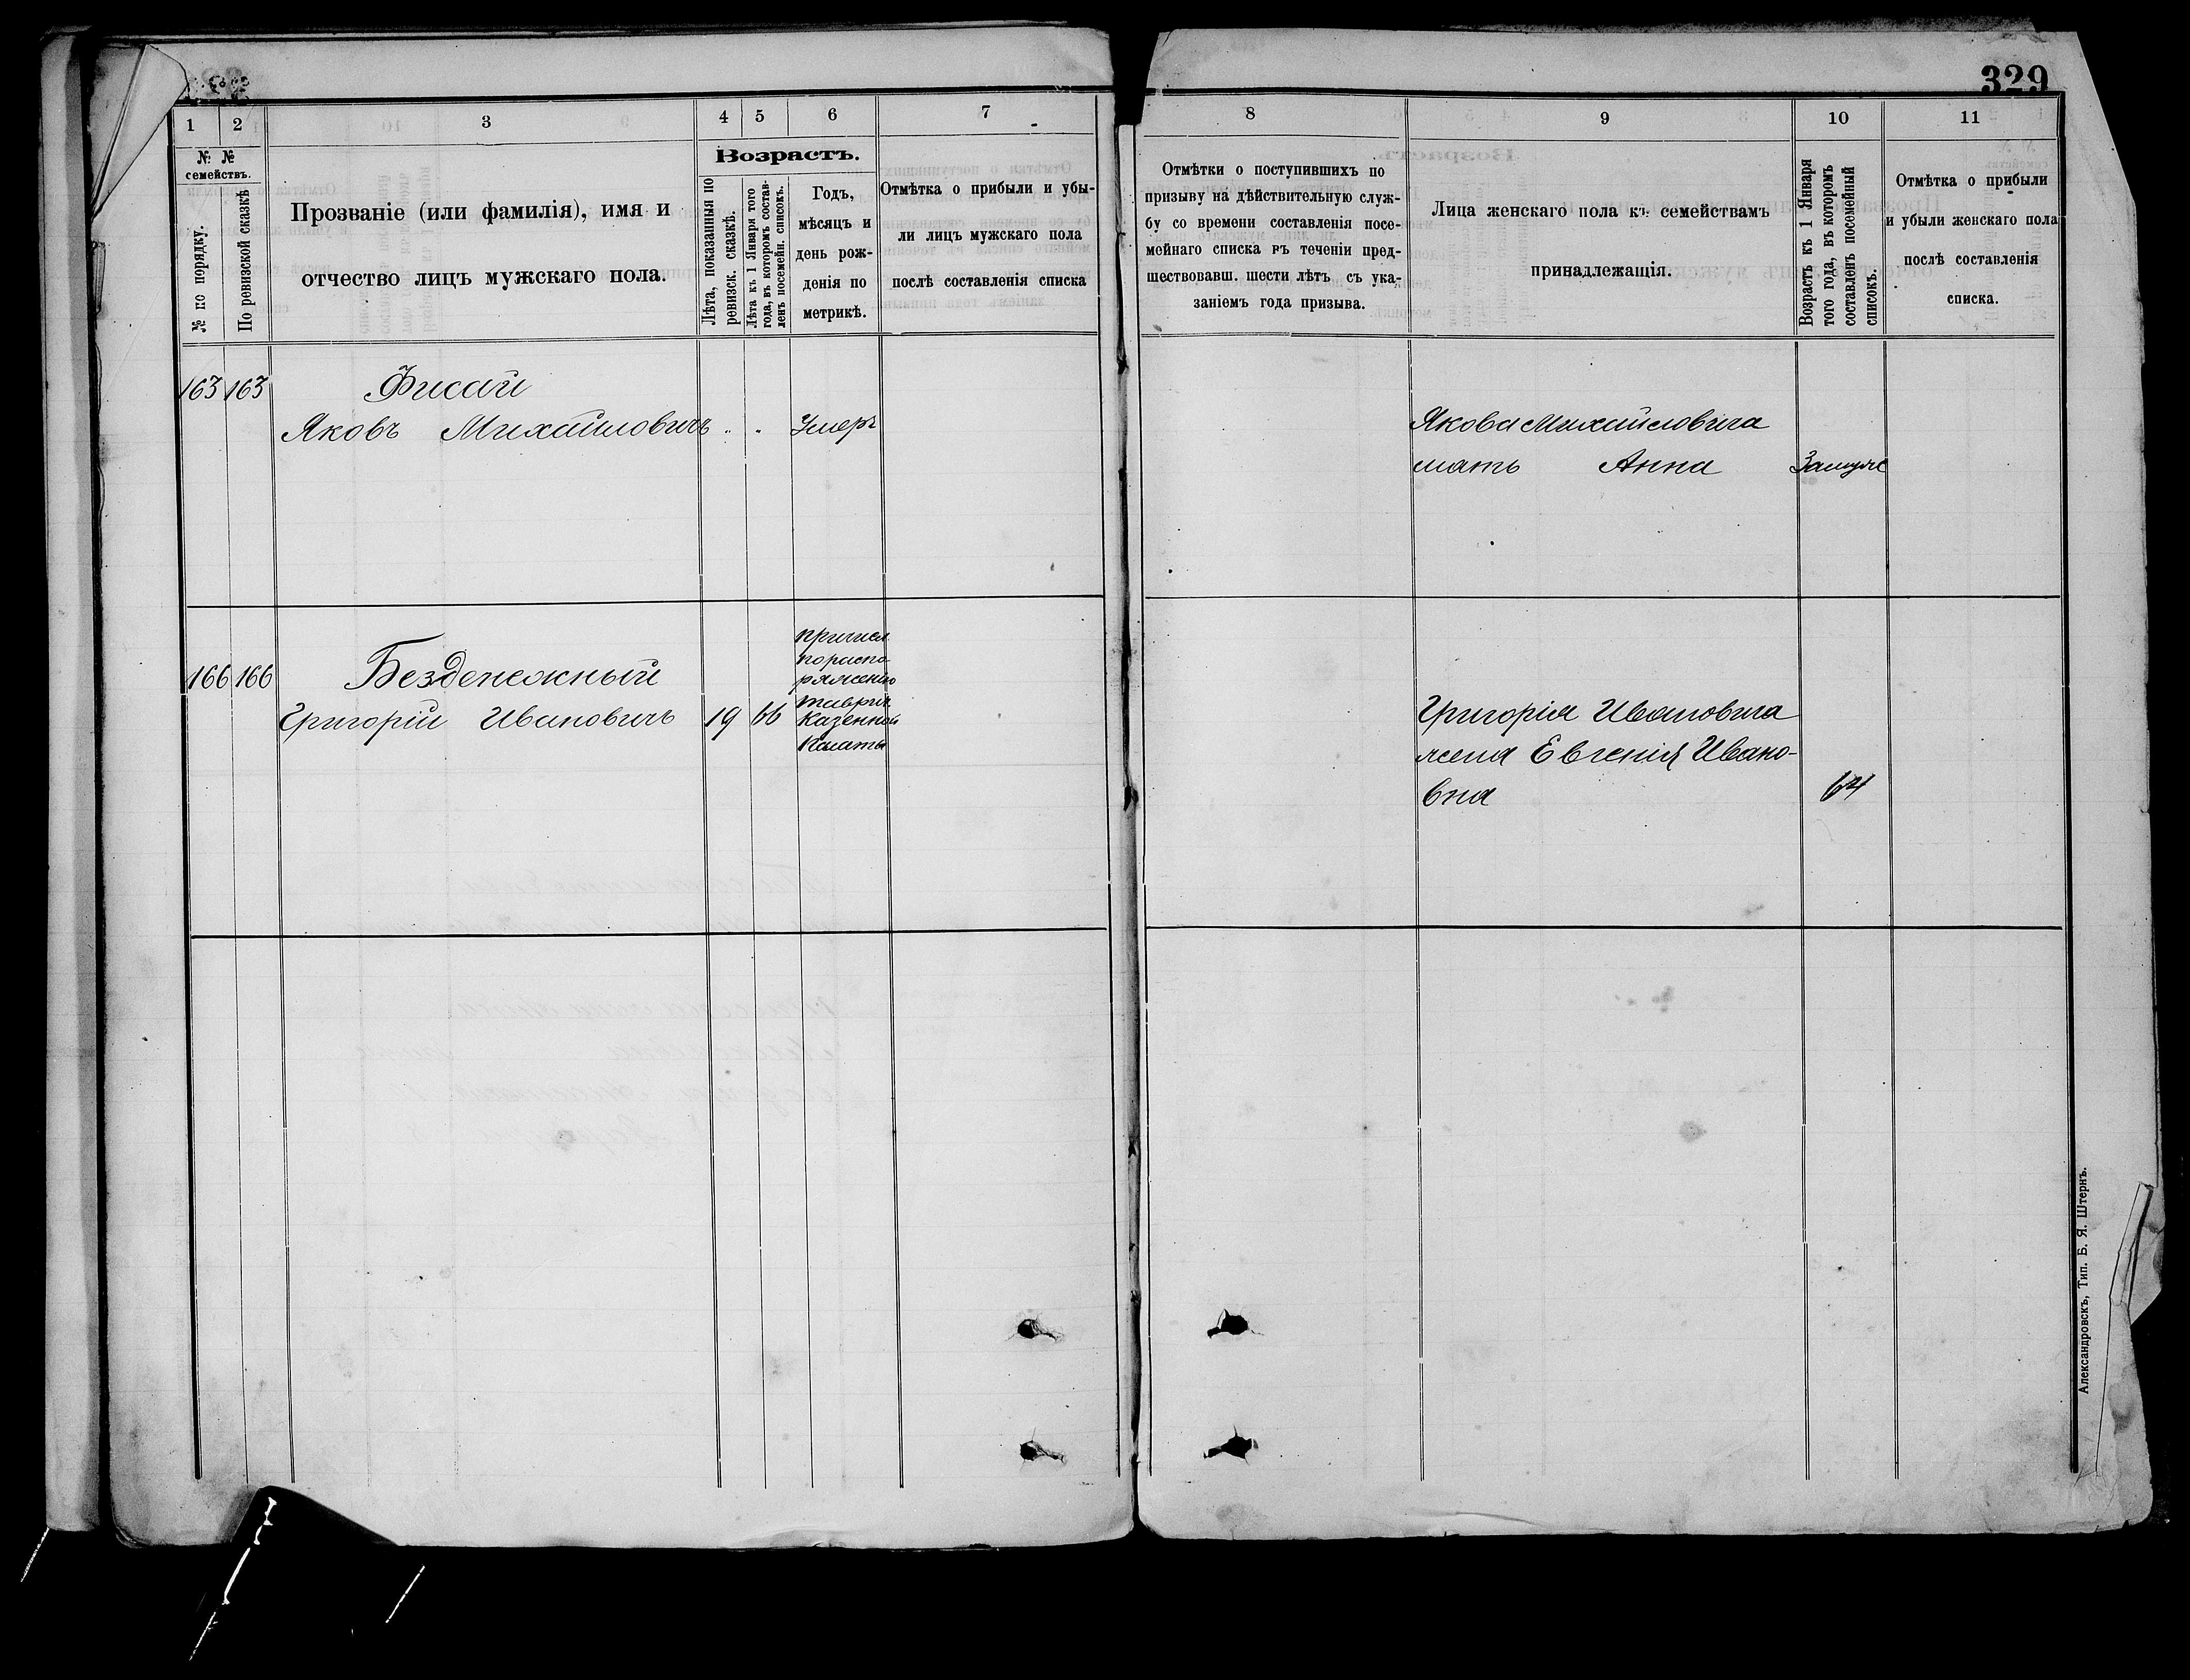 329
1 2 3 4 5 6 7
№ №
семействъ.
№ по порядку.
По ревизской сказкѣ
Прозваніе (или фамилія), имя и
отчество лицъ мужскаго пола.
Возрастъ.
Лѣта, показанныя по
ревизск. сказкѣ.
Лѣта къ 1 Января того
года, въ которомъ состав-
ленъ посемейн. списокъ.
Годъ,
мѣсяцъ и
день рож-
денія по
метрикѣ.
Отмѣтка о прибыли и убы-
ли лицъ мужскаго пола
послѣ составленія списка
163 163 Фисай
Яковъ Михайловичъ " " Умеръ
166 166 Безденежный
Григорій Ивановичъ 19 66
причисл
по распо
ряженію
таврич
Казенной
Палаты
8 9 10 11
Отмѣтки о поступившихъ по
призыву на дѣйствительную служ-
бу со времени составленія посе-
мейнаго списка въ теченіи пред-
шествовавш. шести лѣтъ съ ука-
заніемъ года призыва.
Лица женскаго пола къ семействамъ
принадлежащія.
Возрастъ къ 1 Января
того года, въ которомъ
составленъ посемейный
списокъ.
Отмѣтка о прибыли
и убыли женскаго пола
послѣ составленія
списка.
Якова Михайловича
мать Анна Замуж
Григорія Ивановича
жена Евгенія Ивано-
вна 64
Александровскъ, Тип. Б. Я. Штернъ.